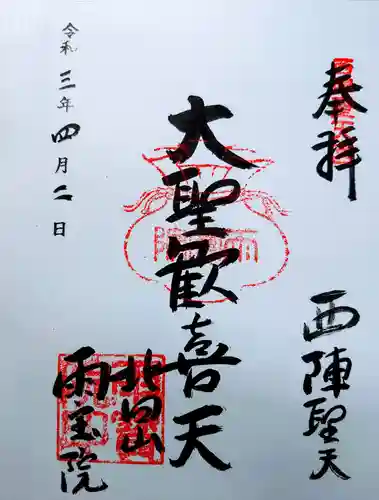 奉拝
西陣聖天
大聖歓喜天
北向山
雨宝院
令和三年四月二日